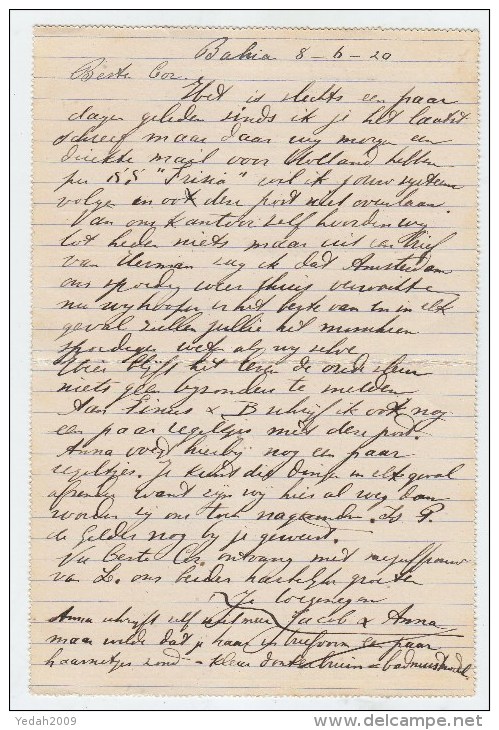 Bahia 8-6-20
Beste Cor.
Het is slechts een paar
dagen geleden sinds ik je het laatst
schreef maar daar wij morgen een
direkte mail voor Holland hebben
per s.s. "Frisia" wil ik jouw systeem
volgen en ook deze post niet overslaan.
Van ons kantoor zelf hoorden wij
tot heden niets maar uit een brief
van Herman zag ik dat Amsterdam
ons spoedig weer thuis verwachtte
nu wij hopen er het beste van in elk
geval zullen jullie het misschien
spoediger weten als wij zelve
Hier blijft het leven de oude sleur
niets geen byzonders te melden
Aan & B schrijf ik ook nog
een paar regeltjes met deze post.
Anna voegt hierbij nog een paar
regeltjes. Je kunt die dingen in elk geval
afzenden want zijn wij hier al weg dan
worden zij ons toch nagezonden. Is P.
de Gelder nog bij je geweest.
Nu beste Cor. ontvang met mejuffrouw
van L. ons beider hartelijke groeten
Je toegenegen
Jacob & Anna
Anna schrijft zelf niet meer
maar wilde dat je haar in briefvorm een paar
haarnetjes zond - kleur donkerbruin
Yedah2009
www.delcampe.net